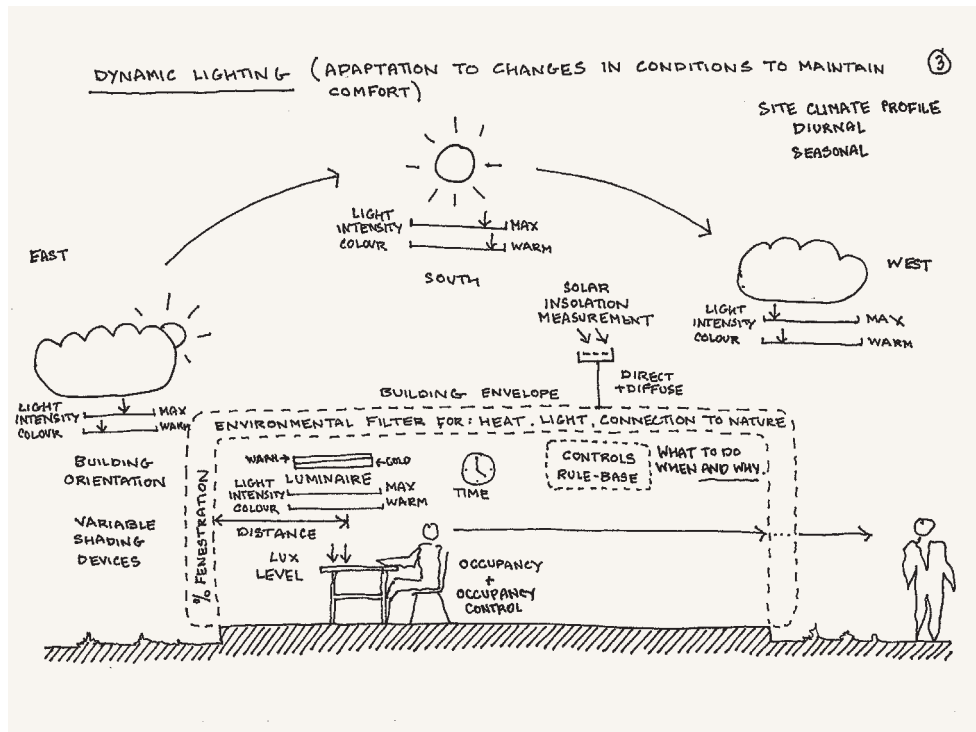 DYNAMIC LIGHTING (ADAPTATION TO CHANGES IN CONDITIONS TO MAINTAIN
COMFORT)
3
SITE CLIMATE PROFILE
DIURNAL
SEASONAL
LIGHT
INTENSITY MAX
COLOUR WARM
SOUTH
EAST
WEST
LIGHT
INTENSITY MAX
COLOUR WARM
SOLAR
INSOLATION
MEASUREMENT
DIRECT
+DIFFUSE
LIGHT
INTENSITY MAX
COLOUR WARM
BUILDING ENVELOPE
ENVIRONMENTAL FILTER FOR: HEAT. LIGHT. CONNECTION TO NATURE
BUILDING
ORIENTATION
VARIABLE
SHADING
DEVICES
% FENESTRATION
WARM COLD
LUMINAIRE
LIGHT
INTENSITY MAX
COLOUR WARM
DISTANCE
LUX
LEVEL
TIME
CONTROLS
RULE-BASE
WHAT TO DO
WHEN AND WHY.
OCCUPANCY
+
OCCUPANCY
CONTROL